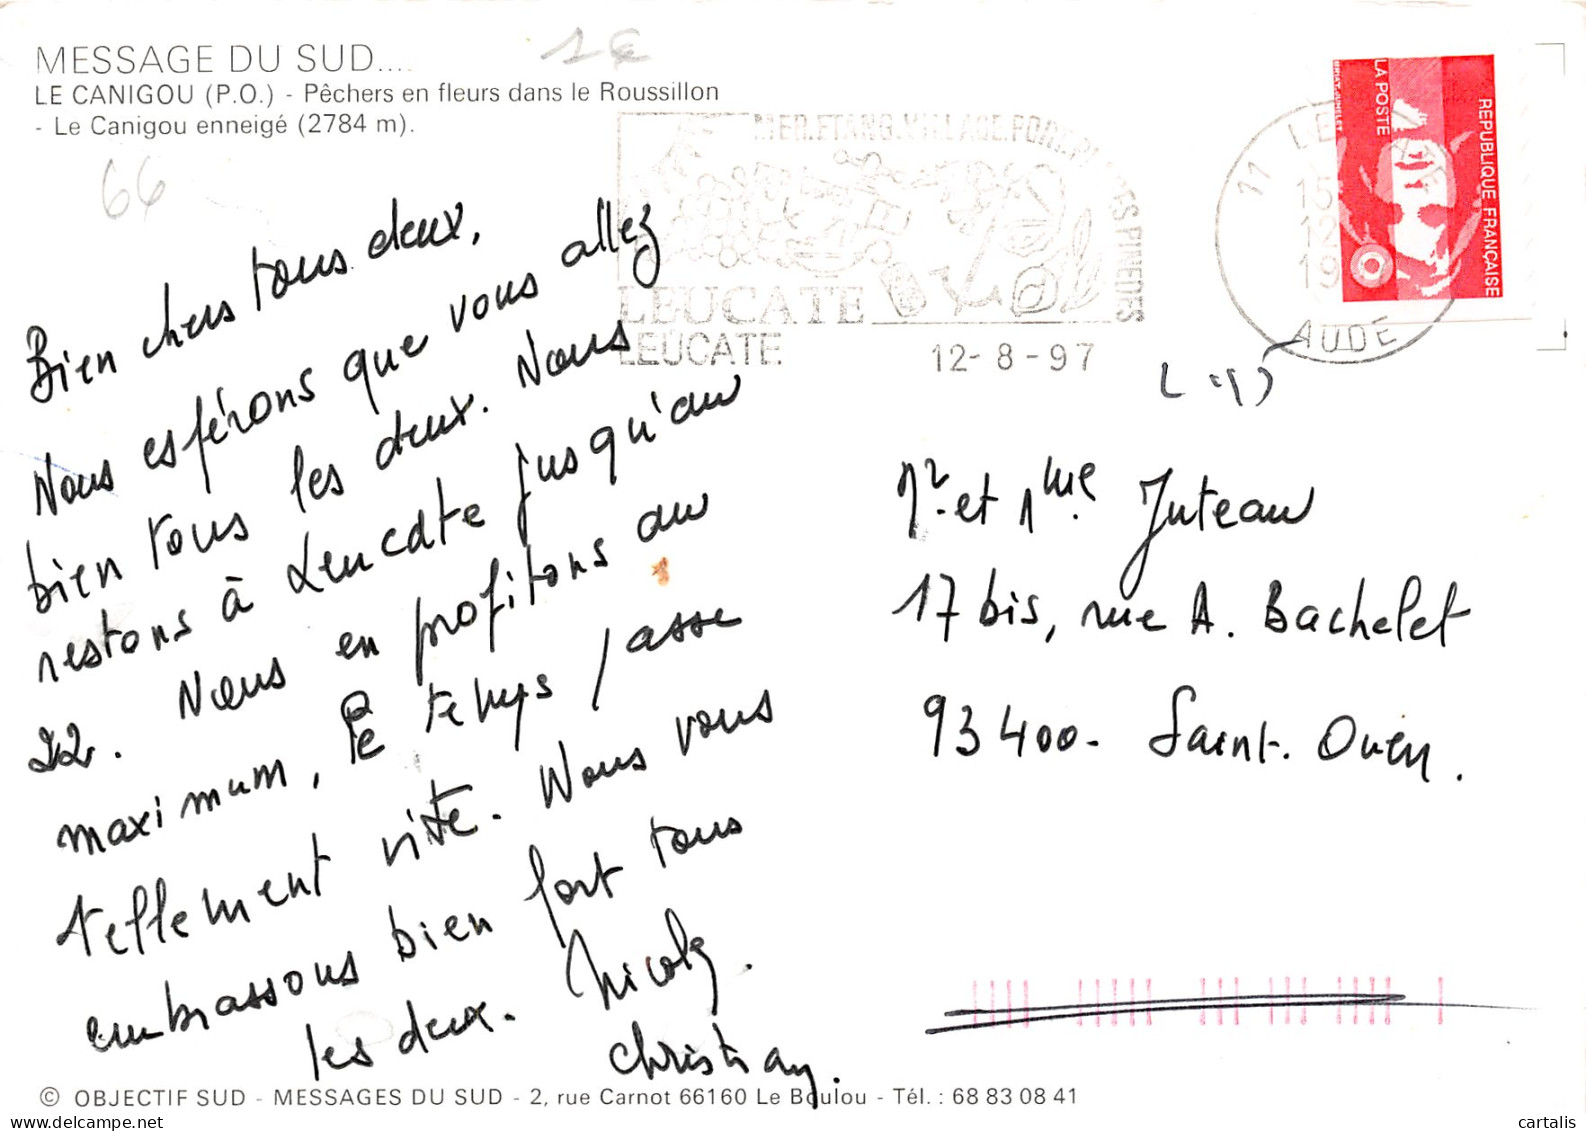 MESSAGE DU SUD....
LE CANIGOU (P.O.) - Pêchers en fleurs dans le Roussillon
- Le Canigou enneigé (2784 m).
1€
66
Bien chers tous deux,
Nous espérons que vous allez
bien tous les deux. Nous
restons à Leucate jusqu'au
22. Nous en profitons au
maximum, le temps passe
tellement vite. Nous vous
embrassons bien fort tous
les deux. Nicole.
Christian.
MER.ETANG.VILLAGE.FORE
ES PINEDES
LEUCATE
LEUCATE
12-8-97
11 LE
15
12
19
AUDE
LA POSTE
REPUBLIQUE FRANÇAISE
BRIAT-JUMELET
Mr. et Mme. Juteau
17 bis, rue A. Bachelet
93400 - Saint. Ouen.
© OBJECTIF SUD - MESSAGES DU SUD - 2, rue Carnot 66160 Le Boulou - Tél. : 68 83 08 41
cartalis